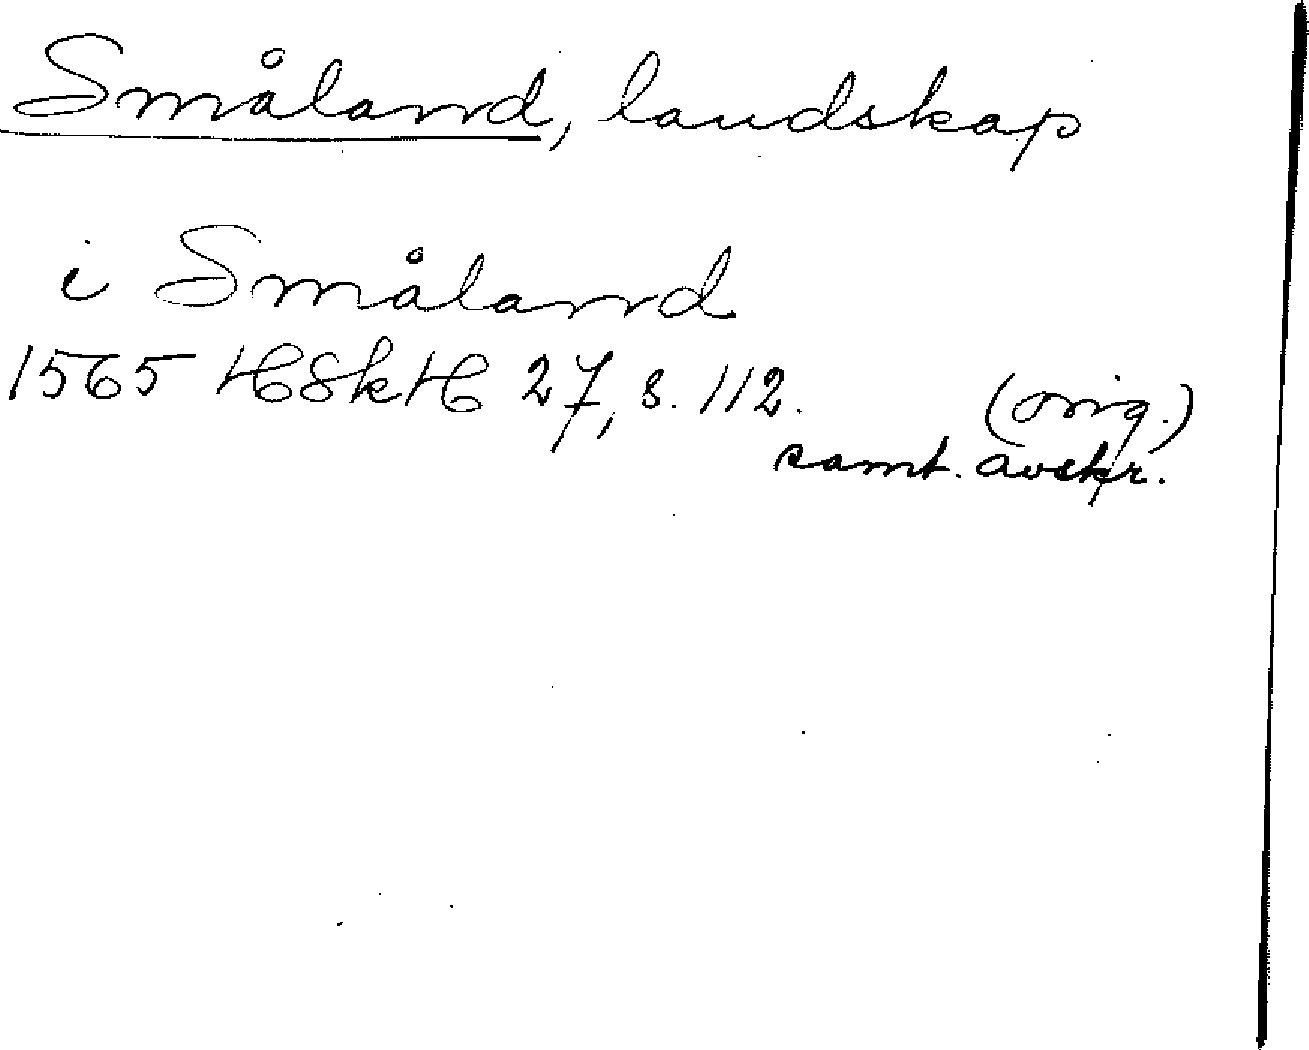 Småland, landskap
i Småland
1565 HSkH 27, s. 112. (orig.)
samt. avskr.